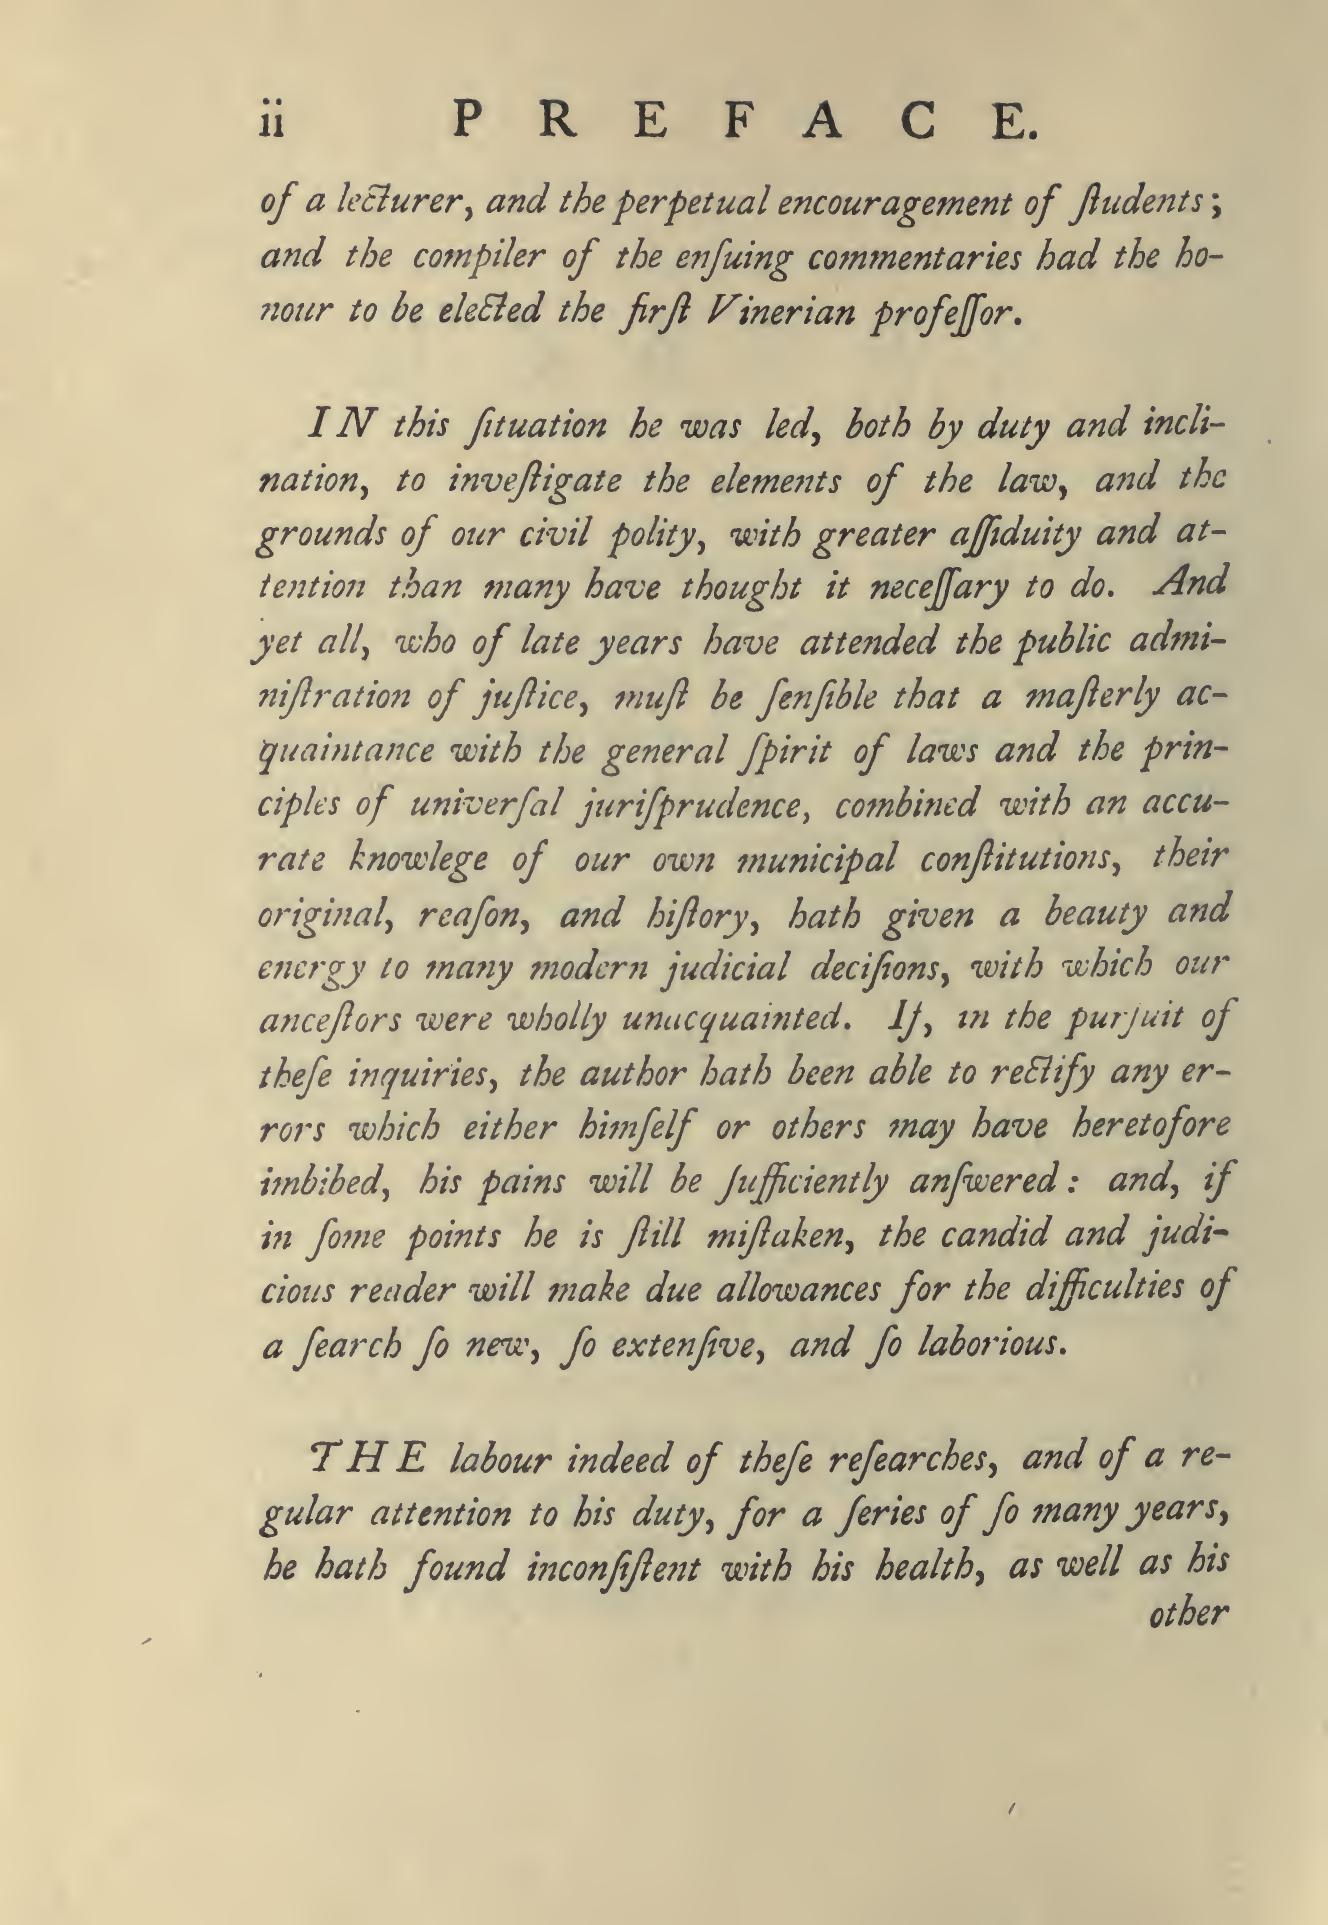 ii P R E F A C E.
of a lecturer, and the perpetual encouragement of ſtudents;
and the compiler of the enſuing commentaries had the ho-
nour to be elected the firſt Vinerian profeſſor.
IN this ſituation he was led, both by duty and incli-
nation, to inveſtigate the elements of the law, and the
grounds of our civil polity, with greater aſſiduity and at-
tention than many have thought it neceſſary to do. And
yet all, who of late years have attended the public admi-
niſtration of juſtice, muſt be ſenſible that a maſterly ac-
quaintance with the general ſpirit of laws and the prin-
ciples of univerſal juriſprudence, combined with an accu-
rate knowlege of our own municipal conſtitutions, their
original, reaſon, and hiſtory, hath given a beauty and
energy to many modern judicial deciſions, with which our
anceſtors were wholly unacquainted. If, in the purſuit of
theſe inquiries, the author hath been able to rectify any er-
rors which either himſelf or others may have heretofore
imbibed, his pains will be ſufficiently anſwered : and, if
in ſome points he is ſtill miſtaken, the candid and judi-
cious reader will make due allowances for the difficulties of
a ſearch ſo new, ſo extenſive, and ſo laborious.
THE labour indeed of theſe reſearches, and of a re-
gular attention to his duty, for a ſeries of ſo many years,
he hath found inconſiſtent with his health, as well as his
other